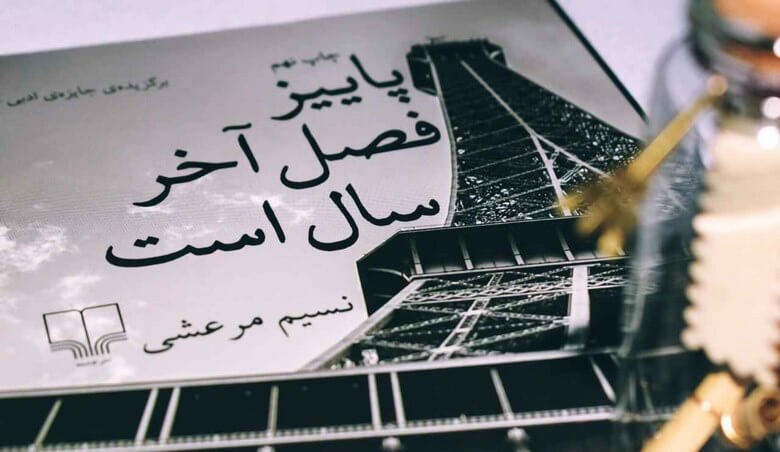 چاپ نهم
برگزیده‌ی جایزه‌ی ادبی
پاییز
فصل آخر
سال است
نسیم مرعشی